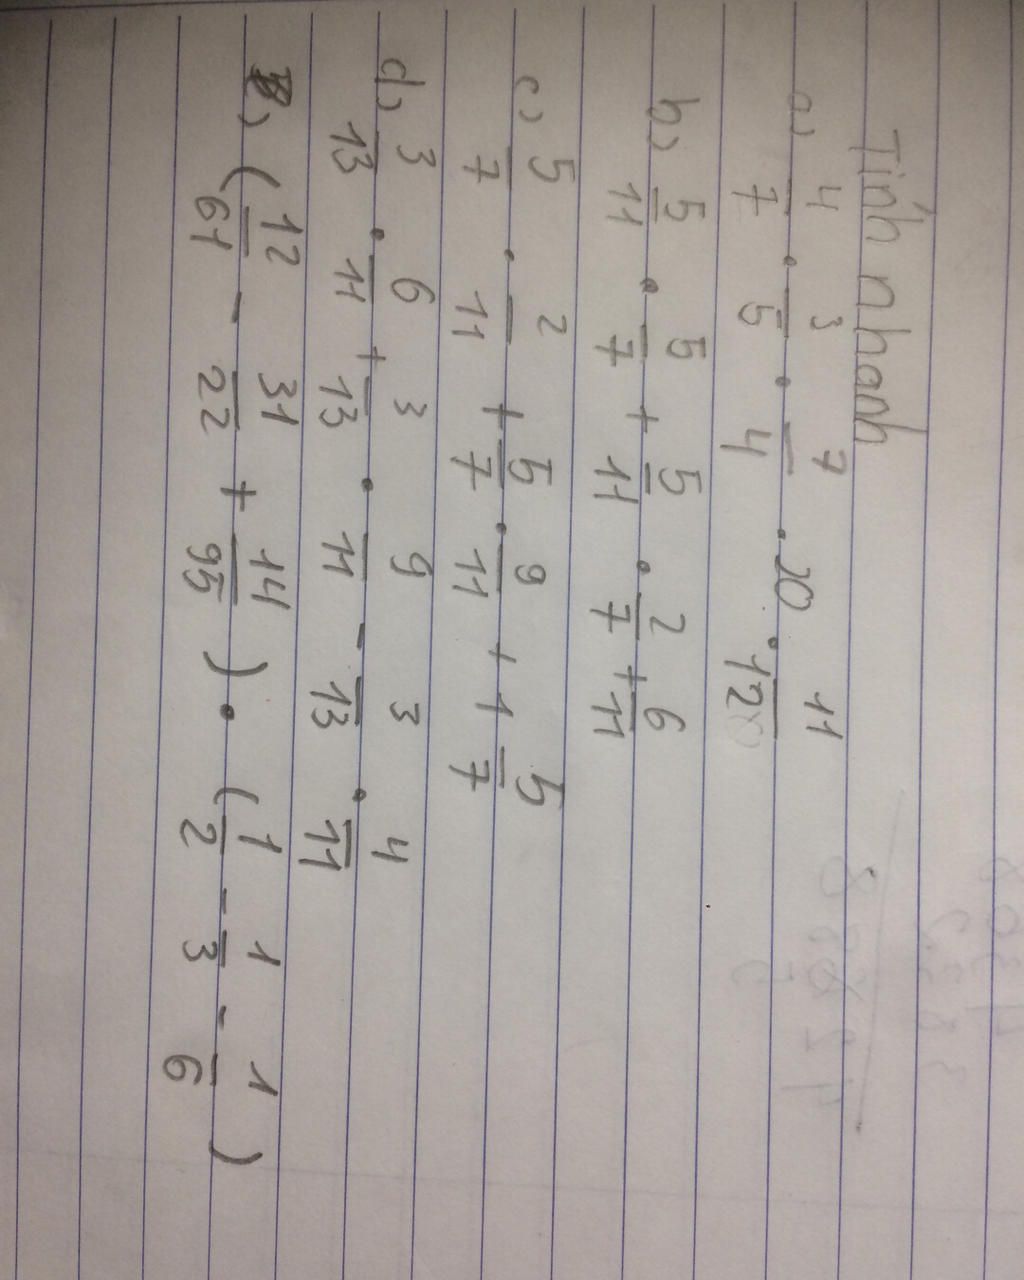 Tính nhanh
a) 4/7 . 3/5 . 7/4 . 20 . 11/12
b) 5/11 . 5/7 + 5/11 . 2/7 + 6/11
c) 5/7 . 2/11 + 5/7 . 9/11 + 1 5/7
d) 3/13 . 6/11 + 3/13 . 9/11 - 3/13 . 4/11
(12/61 - 31/22 + 14/95) . (1/2 - 1/3 - 1/6)